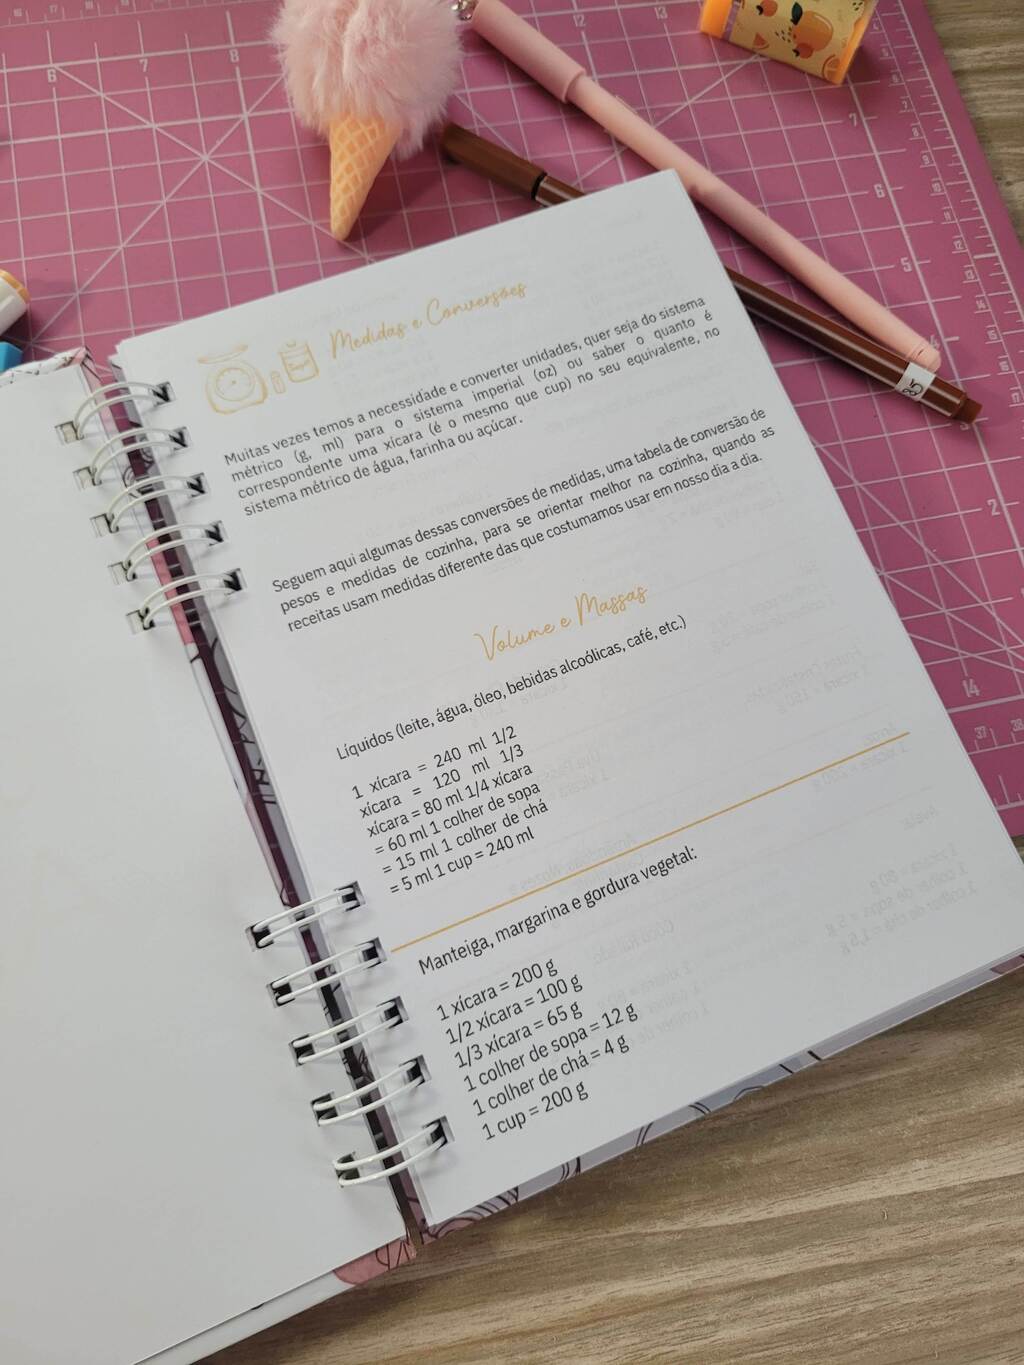 Medidas e Conversões
Muitas vezes temos a necessidade e converter unidades, quer seja do sistema
métrico (g, ml) para o sistema imperial (oz) ou saber o quanto é
correspondente uma xícara (é o mesmo que cup) no seu equivalente, no
sistema métrico de água, farinha ou açúcar.
Seguem aqui algumas dessas conversões de medidas, uma tabela de conversão de
pesos e medidas de cozinha, para se orientar melhor na cozinha, quando as
receitas usam medidas diferente das que costumamos usar em nosso dia a dia.
Volume e Massas
Líquidos (leite, água, óleo, bebidas alcoólicas, café, etc.)
1 xícara = 240 ml 1/2
xícara = 120 ml 1/3
xícara = 80 ml 1/4 xícara
= 60 ml 1 colher de sopa
= 15 ml 1 colher de chá
= 5 ml 1 cup = 240 ml
Manteiga, margarina e gordura vegetal:
1 xícara = 200 g
1/2 xícara = 100 g
1/3 xícara = 65 g
1 colher de sopa = 12 g
1 colher de chá = 4 g
1 cup = 200 g